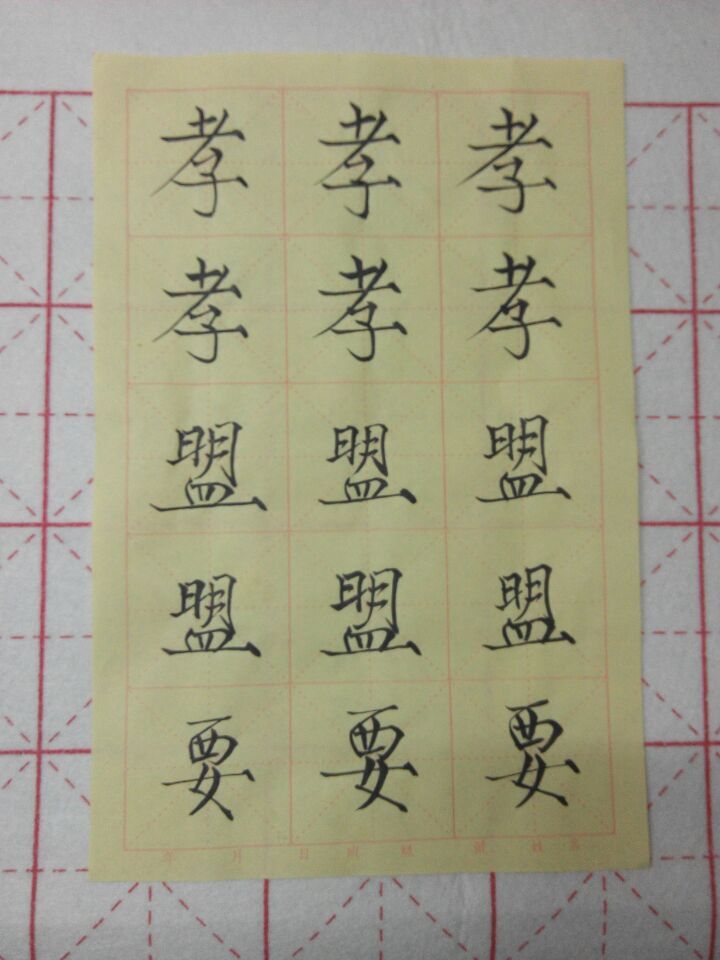 孝孝孝
孝孝孝
盟盟盟
盟盟盟
要要要
年 月 日